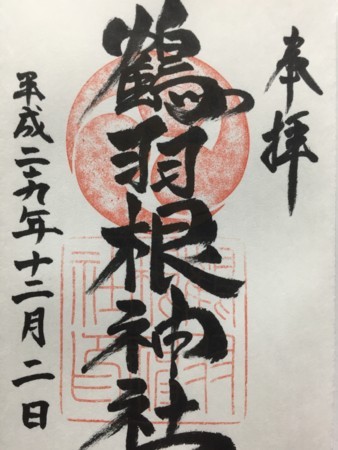 奉拝
鶴羽根神社
平成二十九年十二月二日